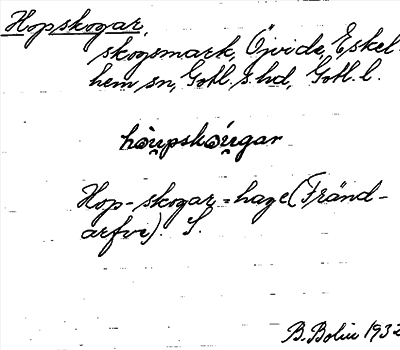 Hopskogar,
skogsmark, Öjvide, Eskel-
hem sn, Gotl. s. hd, Gotl. l.
hòu̯pskóu̯gar
Hop-skogar = hage (Fränd-
arfve). S.
B. Bolin 1932